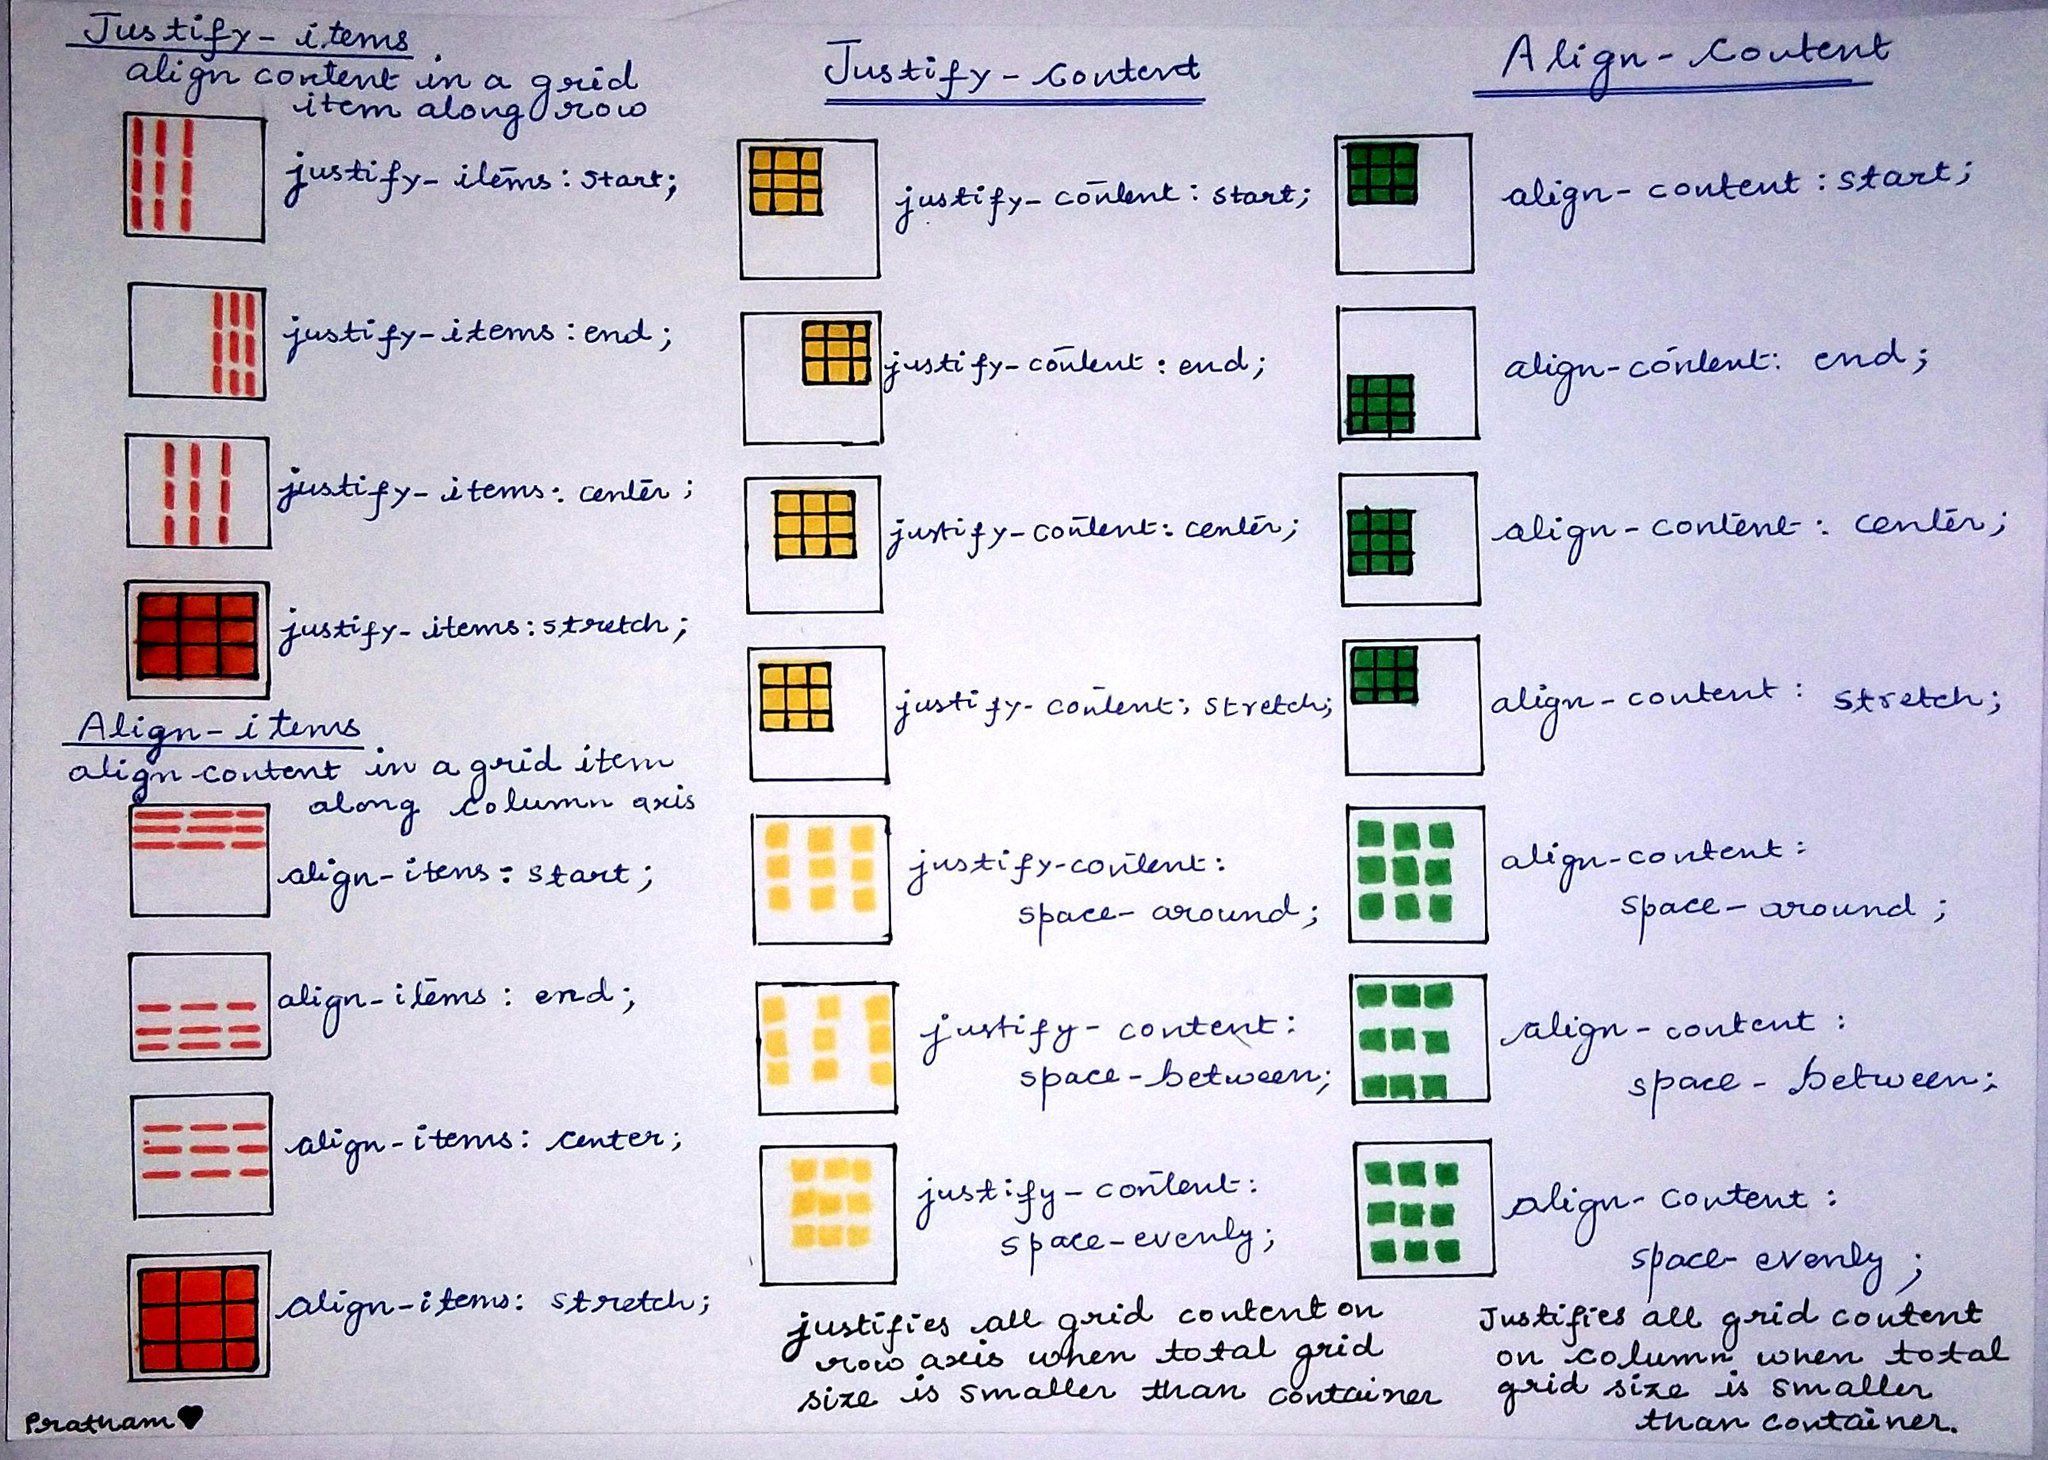 Justify-items
align content in a grid
item along row
justify-items: start;
justify-items: end;
justify-items: center;
justify-items: stretch;
Align-items
align content in a grid item
along column axis
align-itens: start;
align-items: end;
align-items: center;
align-items: stretch;
Pratham
Justify-Content
justify-content: start;
justify-content: end;
justify-content: center;
justify-content: stretch;
justify-content:
space-around;
justify-content:
space-between;
justify-content:
space-evenly;
justifies all grid content on
row axis when total grid
size is smaller than container
Align-Content
align-content: start;
align-content: end;
align-content: center;
align-content: stretch;
align-content:
space-around;
align-content:
space-between;
align-content:
space-evenly;
Justifies all grid content
on column when total
grid size is smaller
than container.